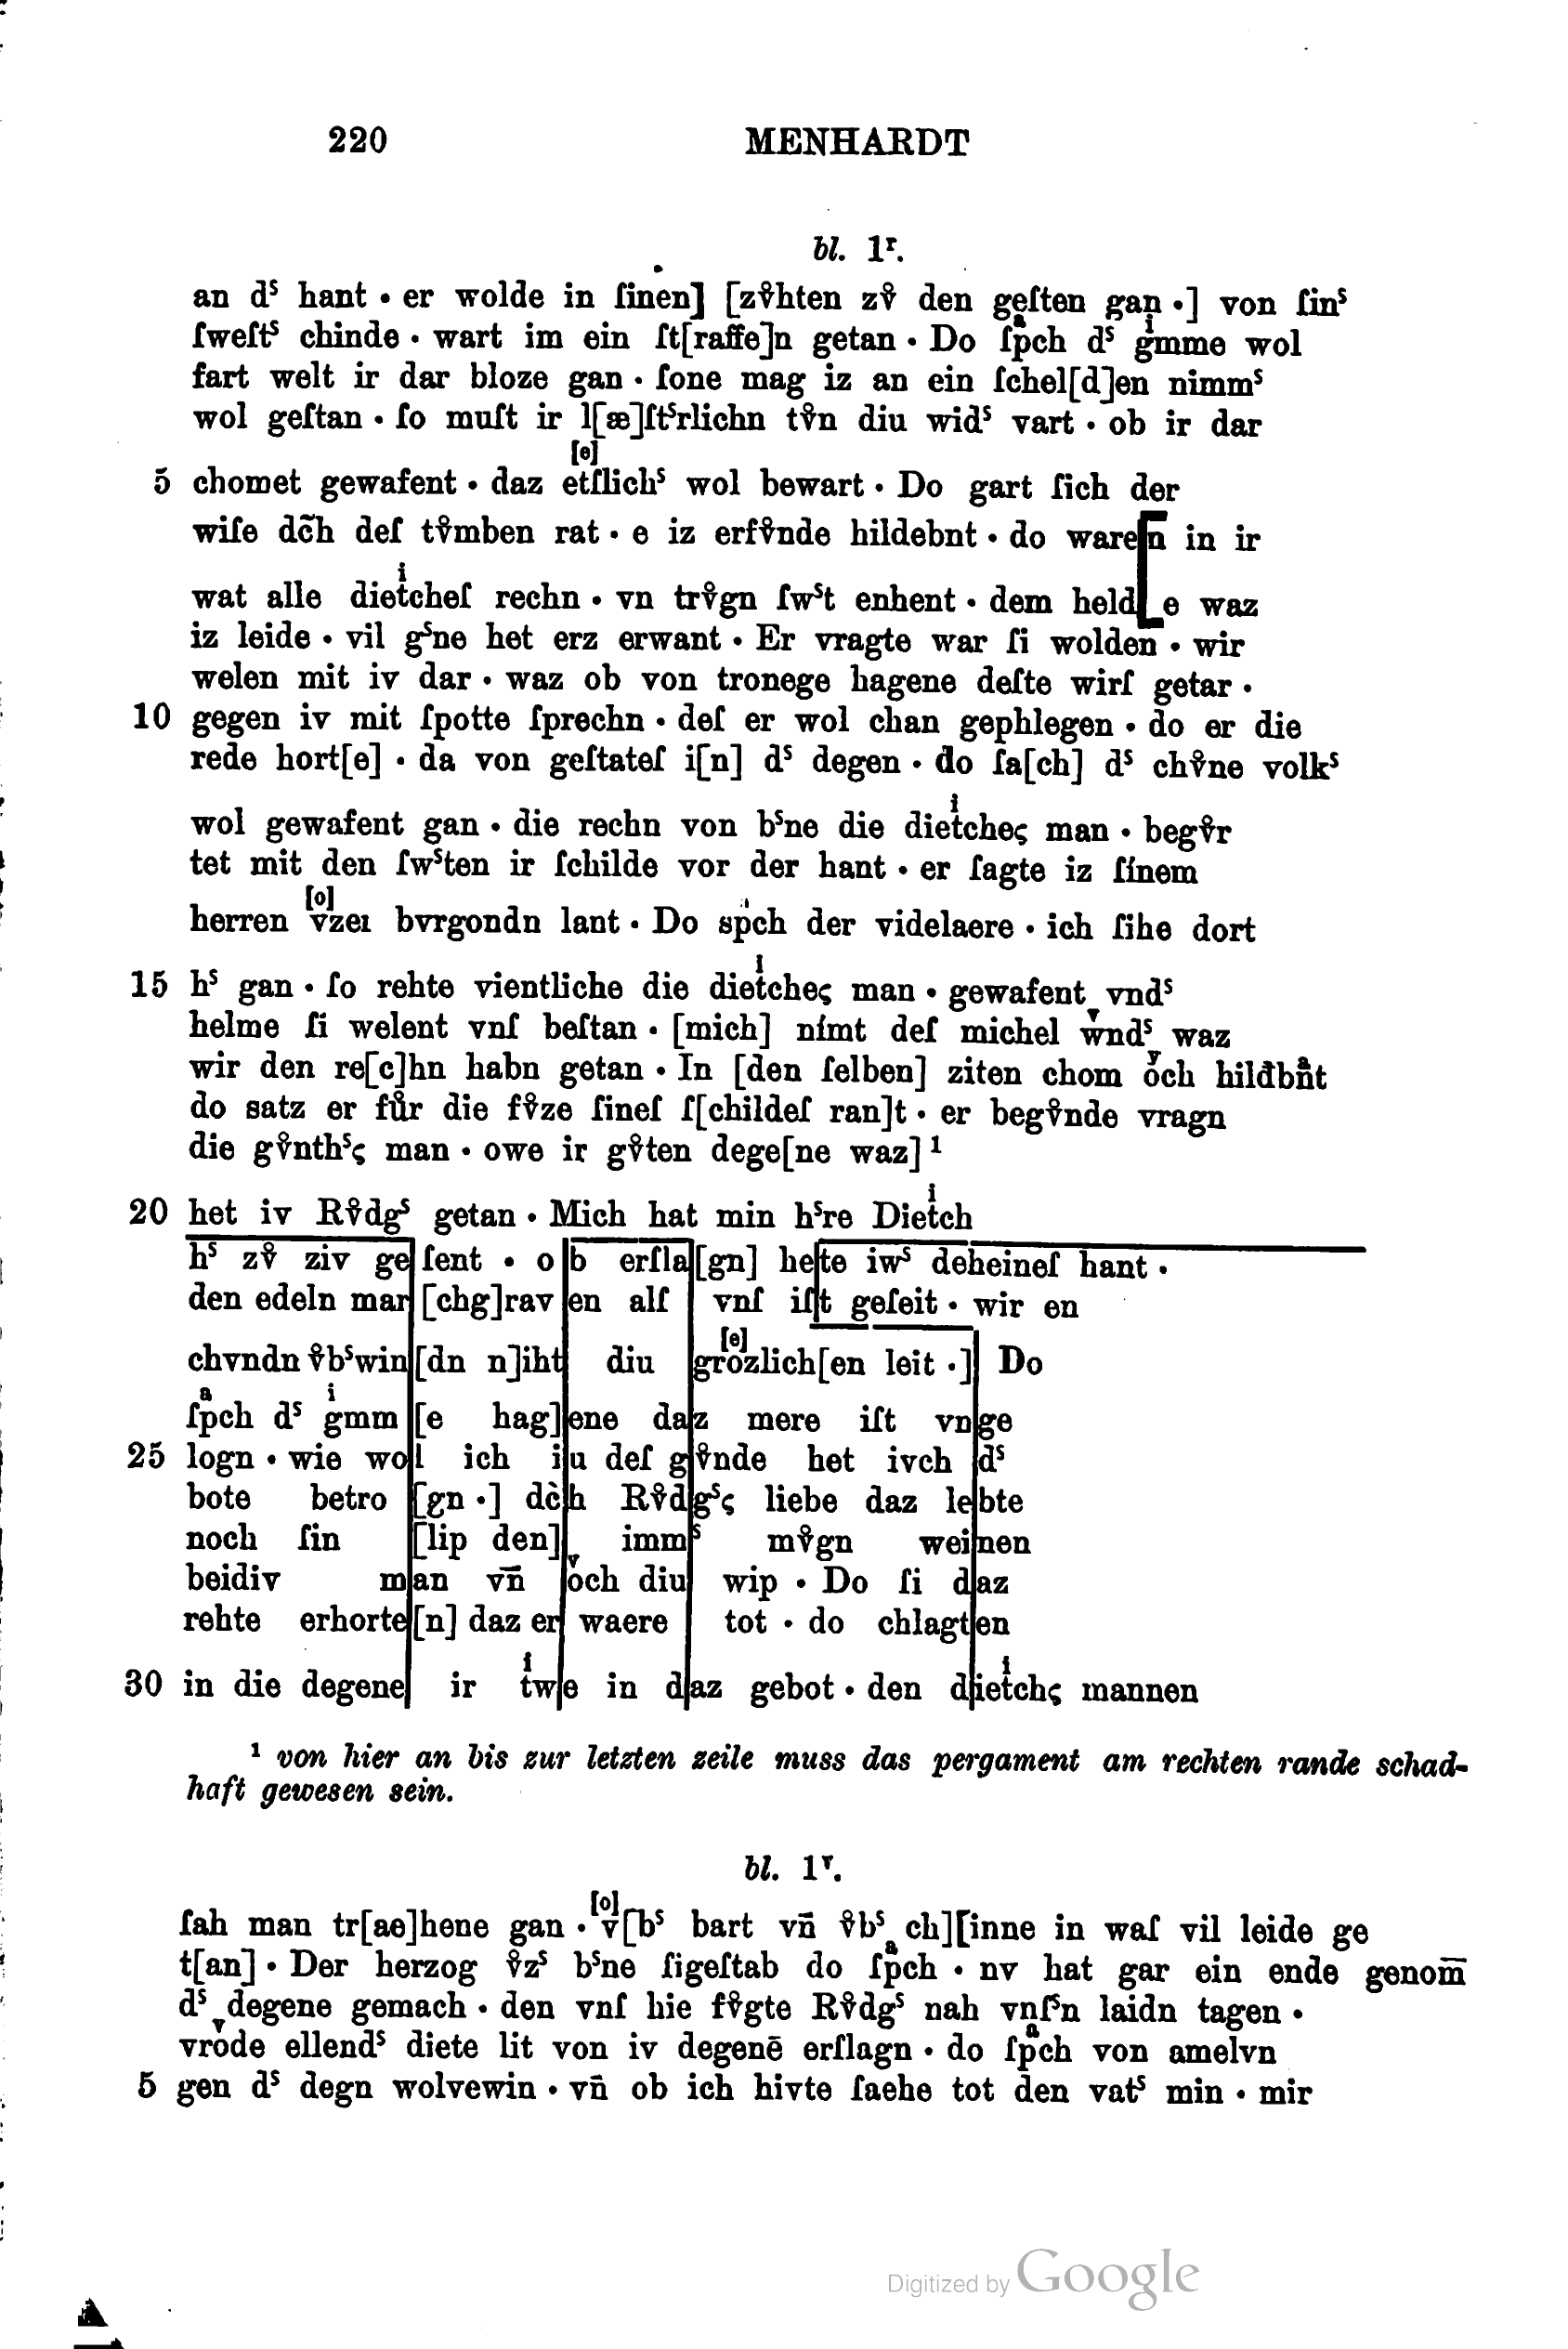 220 MENHARDT
bl. 1ʳ.
an dˢ hant • er wolde in ſinen] [zv̊hten zv̊ den geſten gan •] von ſinˢ
ſweſtˢ chinde • wart im ein ſt[raffe]n getan • Do ſpͣch dˢ gͥmme wol
fart welt ir dar bloze gan • ſone mag iz an ein ſchel[d]en nimmˢ
wol geſtan • ſo muſt ir l[æ]ſtˢrlichn tv̊n diu widˢ vart • ob ir dar
[e]
5 chomet gewafent • daz etſlichˢ wol bewart • Do gart ſich der
wiſe dc̄h deſ tv̊mben rat • e iz erfv̊nde hildebnt • do ware[n in ir
wat alle dietͥcheſ rechn • vn trv̊gn ſwˢt enhent • dem held[e waz
iz leide • vil gˢne het erz erwant • Er vragte war ſi wolden • wir
welen mit iv dar • waz ob von tronege hagene deſte wirſ getar •
10 gegen iv mit ſpotte ſprechn • deſ er wol chan gephlegen • do er die
rede hort[e] • da von geſtateſ i[n] dˢ degen • do ſa[ch] dˢ chv̊ne volkˢ
wol gewafent gan • die rechn von bˢne die dietͥcheς man • begv̊r
tet mit den ſwˢten ir ſchilde vor der hant • er ſagte iz ſínem
[o]
herren vzeı bvrgondn lant • Do spͥch der videlaere • ich ſihe dort
15 hˢ gan • ſo rehte vientliche die dietͥcheς man • gewafent vndˢ
helme ſi welent vnſ beſtan • [mich] nímt deſ michel wͮndˢ waz
wir den re[c]hn habn getan • In [den ſelben] ziten chom oͮch hilđbn̊t
do satz er fůr die fv̊ze ſineſ ſ[childeſ ran]t • er begv̊nde vragn
die gv̊nthˢς man • owe ir gv̊ten dege[ne waz] ¹
20 het iv Rv̊dgˢ getan • Mich hat min hˢre Dietͥch
hˢ zv̊ ziv ge ſent • o b erſla [gn] he te iwˢ deheineſ hant •
den edeln mar [chg]rav en alſ vnſ iſ t geſeit • wir en
[e]
chvndn v̊bˢwin [dn n]iht diu grozlich[en leit •] Do
ſpͣch dˢ gͥmm [e hag] ene da z mere iſt vn ge
25 logn • wie wo l ich i u deſ g v̊nde het ivch dˢ
bote betro [gn •] dc̀ h Rv̊d gˢς liebe daz le bte
noch ſin [lip den] immˢ mv̊gn wei nen
beidiv m an vn̄ oͮch diu wip • Do ſi d az
rehte erhorte [n] daz er waere tot • do chlagt en
30 in die degene ir tͥw e in d az gebot • den d ietͥchς mannen
¹ von hier an bis zur letzten zeile muss das pergament am rechten rande schad-
haft gewesen sein.
bl. 1ᵛ.
[o]
ſah man tr[ae]hene gan • v[bˢ bart vn̄ v̊bˢ ch][inne in waſ vil leide ge
t[an] • Der herzog v̊zˢ bˢne ſigeſtab do ſpͣch • nv hat gar ein ende genom̅
dˢ degene gemach • den vnſ hie fv̊gte Rv̊dgˢ nah vnſˢn laidn tagen •
vroͮde ellendˢ diete lit von iv degenē erſlagn • do ſpͣch von amelvn
5 gen dˢ degn wolvewin • vn̄ ob ich hivte ſaehe tot den vatˢ min • mir
Digitized by Google